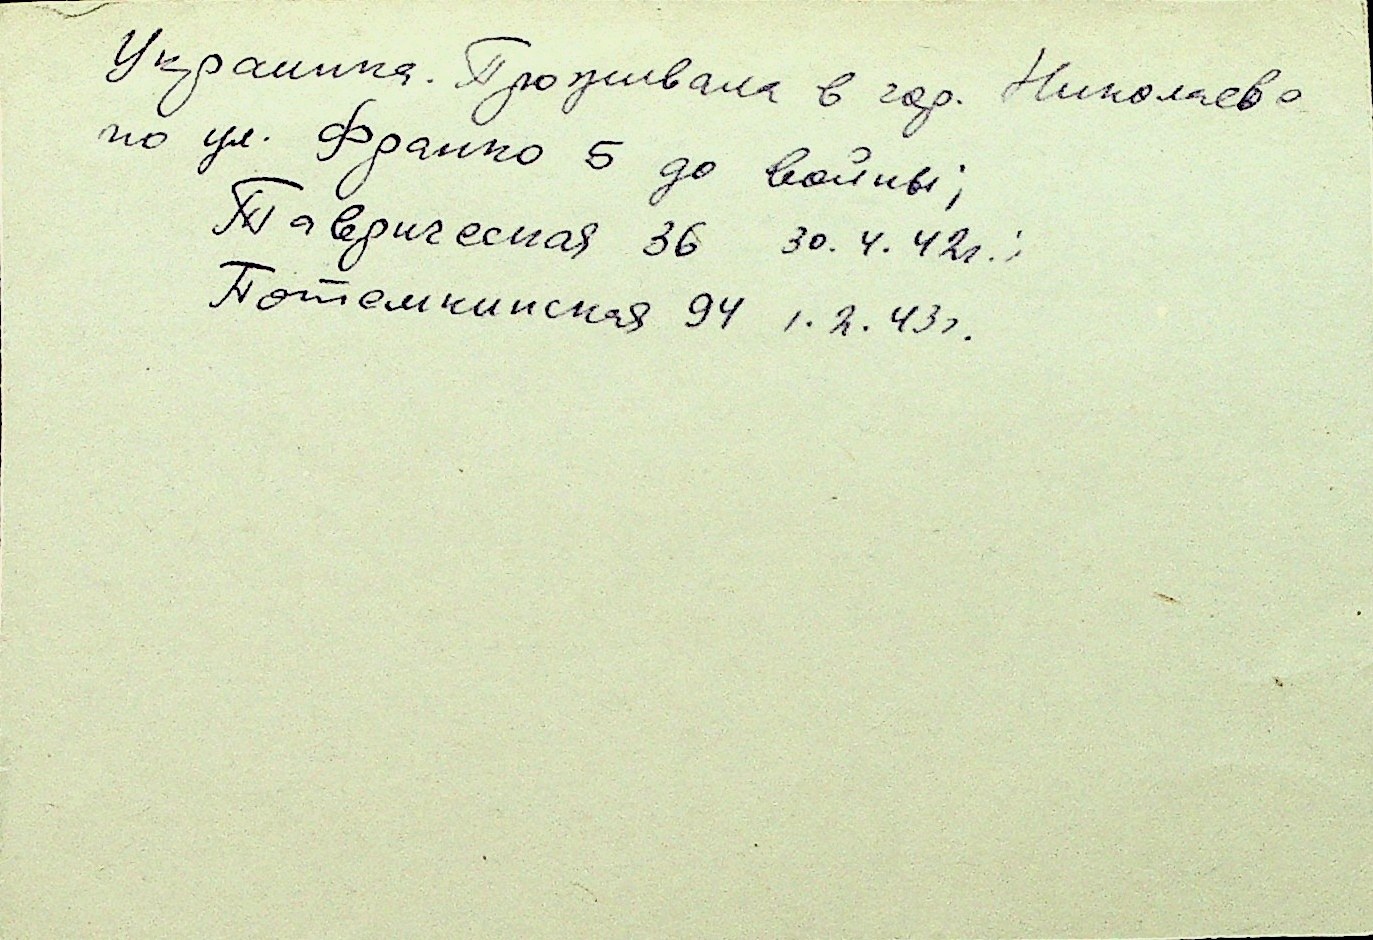 Украинка. Проживала в гор. Николаеве
по ул. Франко 5 до войны;
Таврическая 36 30.4.42г.;
Потемкинская 94 1.2.43г.